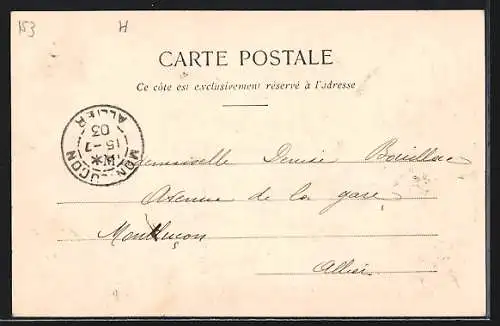 153 H
CARTE POSTALE
Ce côté est exclusivement réservé à l'adresse
MONTLUÇON
ALLIER
15-7
03
Mademoiselle Denise
Avenue de la gare
Montluçon
Allier